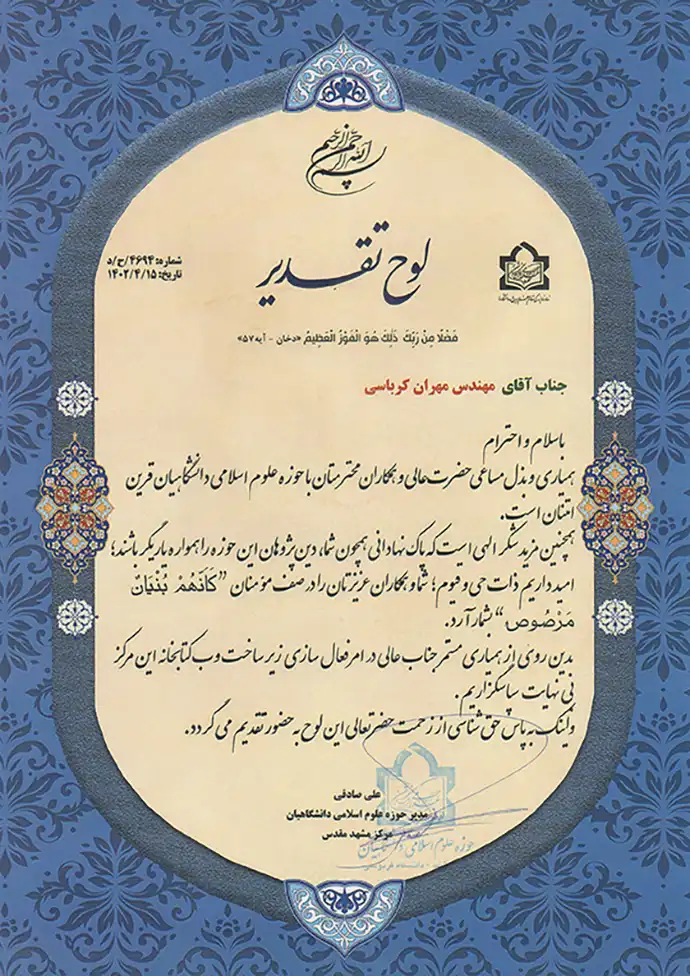 بسم الله الرحمن الرحیم
لوح تقدیر
شماره: ۴۶۹۴/ح/د
تاریخ: ۱۴۰۲/۴/۱۵
فَضْلًا مِنْ رَبِّكَ ذَلِكَ هُوَ الْفَوْزُ الْعَظِيمُ «دخان - آیه ۵۷»
جناب آقای مهندس مهران کرباسی
باسلام و احترام
همیاری و بذل مساعی حضرت‌عالی و همکاران محترمتان با حوزه علوم اسلامی دانشگاهیان قرین
امتنان است.
همچنین مزید شکر الهی است که پاک نهادانی همچون شما، دین پژوهان این حوزه را همواره یاریگر باشند؛
امید داریم ذات حی و قیوم؛ شما و همکاران عزیزتان را در صف مؤمنان "كَأَنَّهُمْ بُنْيَانٌ
مَرْصُوصٌ" بشمار آرد.
بدین روی از همیاری مستمر جناب عالی در امر فعال سازی زیرساخت وب کتابخانه این مرکز
بی نهایت سپاسگزاریم.
و اینک به پاس حق شناسی از زحمت حضرتعالی این لوح به حضور تقدیم می گردد.
علی صادقی
مدیر حوزه علوم اسلامی دانشگاهیان
مرکز مشهد مقدس
حوزه علوم اسلامی دانشگاهیان